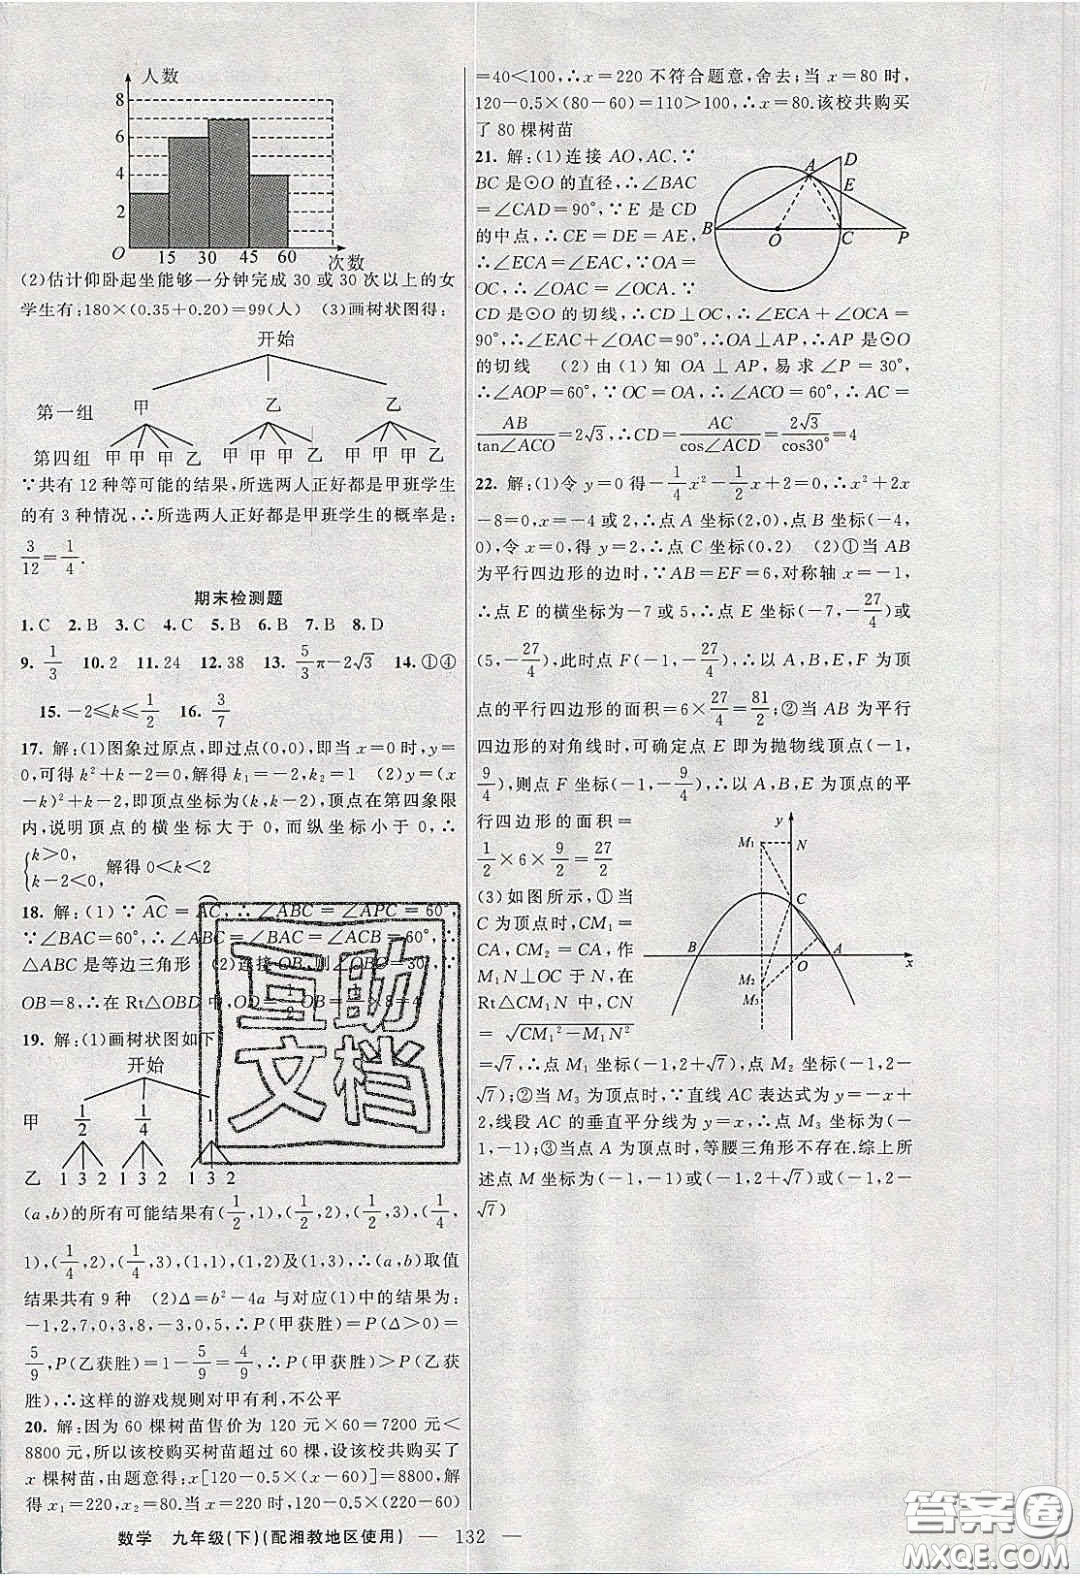 人数
8
6
4
2
O 15 30 45 60 次数
(2)估计仰卧起坐能够一分钟完成 30 或 30 次以上的女
学生有:180×(0.35+0.20)=99(人) (3)画树状图得:
开始
第一组 甲 乙 乙
第四组 甲 甲 甲 乙 甲 甲 甲 乙 甲 甲 甲 乙
∵共有 12 种等可能的结果,所选两人正好都是甲班学生
的有 3 种情况,∴所选两人正好都是甲班学生的概率是:
3/12=1/4.
期末检测题
1.C 2.B 3.C 4.C 5.B 6.B 7.B 8.D
9. 1/3 10.2 11.24 12.38 13. 5/3π-2√3 14.①④
15.-2≤k≤1/2 16. 3/7
17. 解:(1)图象过原点,即过点(0,0),即当 x=0 时,y=
0,可得 k²+k-2=0,解得 k₁=-2,k₂=1 (2)y=(x
-k)²+k-2,即顶点坐标为(k,k-2),顶点在第四象限
内,说明顶点的横坐标大于 0,而纵坐标小于 0,∴
{k>0,
k-2<0, 解得 0<k<2
18. 解:(1)∵AC=AC,∴∠ABC=∠APC=60°,
∵∠BAC=60°,∴∠ABC=∠BAC=∠ACB=60°,∴
△ABC 是等边三角形 (2)连接 OB,则∠OBD=30°,∵
OB=8,∴在 Rt△OBD 中,OD=1/2OB=1/2×8=4
19. 解:(1)画树状图如下
开始
甲 1/2 1/4 1
乙 1 3 2 1 3 2 1 3 2
(a,b)的所有可能结果有(1/2,1),(1/2,2),(1/2,3),(1/4,
1),(1/4,2),(1/4,3),(1,1),(1,2)及(1,3),∴(a,b)取值
结果共有 9 种 (2)Δ=b²-4a 与对应(1)中的结果为:
-1,2,7,0,3,8,-3,0,5,∴P(甲获胜)=P(Δ>0)=
5/9,P(乙获胜)=1-5/9=4/9,∴P(甲获胜)>P(乙获
胜),∴这样的游戏规则对甲有利,不公平
20. 解:因为 60 棵树苗售价为 120 元×60=7200 元<
8800 元,所以该校购买树苗超过 60 棵,设该校共购买了
x 棵树苗,由题意得:x[120-0.5×(x-60)]=8800,解
得 x₁=220,x₂=80.当 x=220 时,120-0.5×(220-60)
=40<100,∴x=220 不符合题意,舍去;当 x=80 时,
120-0.5×(80-60)=110>100,∴x=80.该校共购买
了 80 棵树苗
21. 解:(1)连接 AO,AC.∵
BC 是⊙O 的直径,∴∠BAC
=∠CAD=90°,∵E 是 CD
的中点,∴CE=DE=AE,
∴∠ECA=∠EAC,∵OA=
OC,∴∠OAC=∠OCA,∵
CD 是⊙O 的切线,∴CD⊥OC,∴∠ECA+∠OCA=
90°,∴∠EAC+∠OAC=90°,∴OA⊥AP,∴AP 是⊙O
的切线 (2)由(1)知 OA⊥AP,易求∠P=30°,
∴∠AOP=60°,∵OC=OA,∴∠ACO=60°,∴AC=
AB/tan∠ACO=2√3,∴CD=AC/cos∠ACD=2√3/cos30°=4
A D E B O C P
22. 解:(1)令 y=0 得-1/4x²-1/2x+2=0,∴x²+2x
-8=0,x=-4 或 2,∴点 A 坐标(2,0),点 B 坐标(-4,
0),令 x=0,得 y=2,∴点 C 坐标(0,2) (2)①当 AB
为平行四边形的边时,∵AB=EF=6,对称轴 x=-1,
∴点 E 的横坐标为-7 或 5,∴点 E 坐标(-7,-27/4)或
(5,-27/4),此时点 F(-1,-27/4),∴以 A,B,E,F 为顶
点的平行四边形的面积=6×27/4=81/2;②当 AB 为平行
四边形的对角线时,可确定点 E 即为抛物线顶点(-1,
9/4),则点 F 坐标(-1,-9/4),∴以 A,B,A,E 为顶点的平
行四边形的面积=
1/2×6×9/2=27/2
(3)如图所示,①当
C 为顶点时,CM₁=
CA,CM₂=CA,作
M₁N⊥OC 于 N,在
Rt△CM₁N 中,CN
=√(CM₁²-M₁N²)
y M₁ N C B A O x M₂ M₃
=√7,∴点 M₁ 坐标(-1,2+√7),点 M₂ 坐标(-1,2-
√7);②当 M₃ 为顶点时,∵直线 AC 表达式为=-x+
2,线段 AC 的垂直平分线为 y=x,∴点 M₃ 坐标为(-
1,-1);③当点 A 为顶点时,等腰三角形不存在.综上所
述点 M 坐标为(-1,-1)或(-1,2+√7)或(-1,2-
√7)
互助文档
数学 九年级(下)(配湘教地区使用) — 132 —
答案圈
MXQE.COM